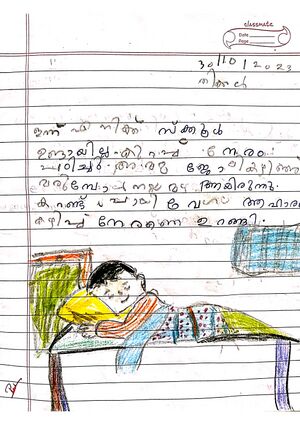 classmate
Date
Page
30/10/2023
തിങ്കൾ
ഇന്ന് എനിക്ക് സ്ക്കൂൾ
ഉണ്ടായില്ല. കുറച്ച് നേരം
പഠിച്ചു. അമ്മ ജോലി കഴിഞ്ഞ്
വരുമ്പോൾ നല്ല മഴ ആയിരുന്നു.
കറണ്ട് പോയി വേഗം ആഹാരം
കഴിച്ച് നേരത്തെ ഉറങ്ങി.